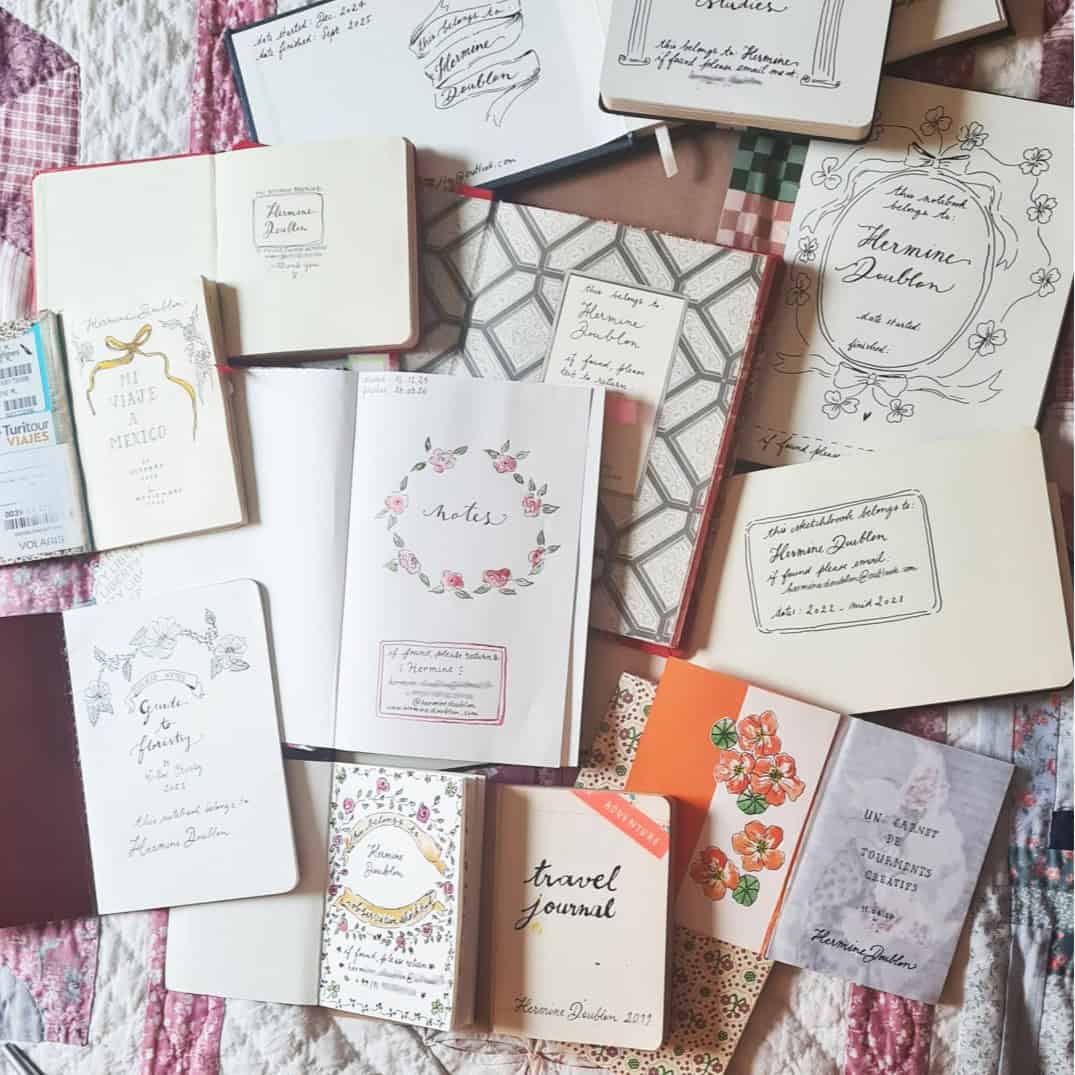 date started: Dec. 2024
date finished: Sept 2025
this belongs to:
Hermine
Doublon
studies
this belongs to: Hermine
if found please email me at:
@outlook.com
Hermine
Doublon
thank you
this belongs to
Hermine
Doublon
if found, please
return
this notebook
belongs to:
Hermine
Doublon
date started:
finished:
if found please
Hermine Doublon
MI
VIAJE
A
MEXICO
Turitour
VIAJES
VOLARIS
notes
if found, please return to:
Hermine
@hermine.doublon
this sketchbook belongs to:
Hermine Doublon
if found please email
hermine.doublon@outlook.com
dates: 2022 - mid 2023
Guide
to
floristry
this notebook belongs to
Hermine Doublon
this belongs to
Hermine
Doublon
observation sketchbook
if found, please return
ADVENTURE
travel
journal
Hermine Doublon 2019
UN CARNET
DE
TOURMENTS
CRÉATIFS
Hermine Doublon